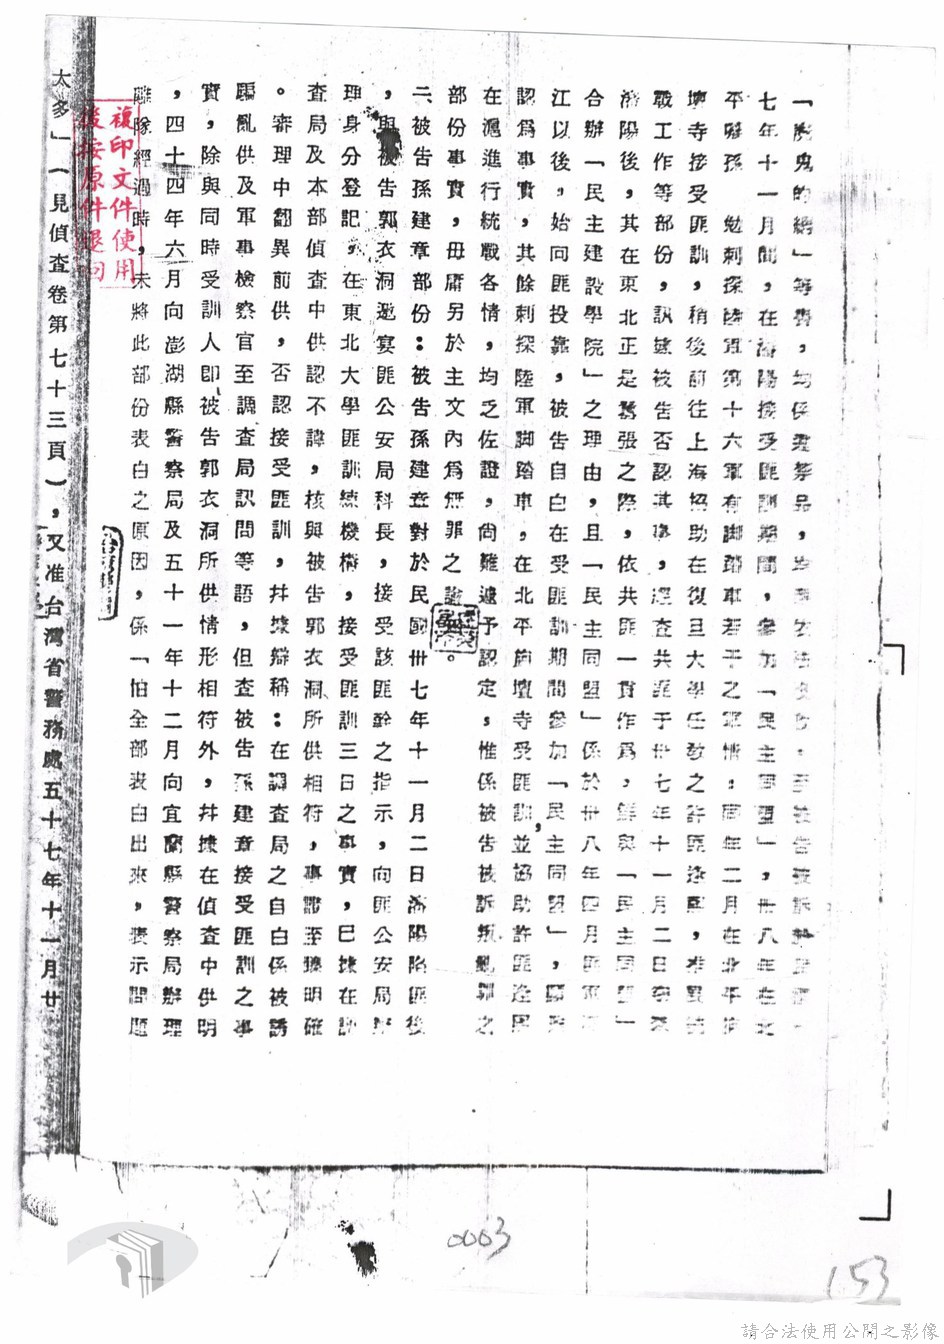 「魔鬼的總」等書,均係違禁品,
七年十一月間,在瀋陽接受匪訓期間,參加「民主同盟」,卅八年在北
平囑孫 勉刺探陸軍第十六軍有脚踏車若干之軍情,同年二月在北平旃
壇寺接受匪訓,稍後前往上海協助在復旦大學任教之許匪逢熙,
戰工作等部份,訊據被告否認其事,經查共匪于卅七年十一月二日竊
瀋陽後,其在東北正是囂張之際,依共匪一貫作為,鮮與「民主同盟」
合辦「民主建設學院」之理由,且「民主同盟」係於卅八年四月匪軍
江以後,始向匪投靠,被告自白在受匪訓期間參加「民主同盟」,顯
認為事實,其餘刺探陸軍脚踏車,在北平旃壇寺受匪訓,並協助許匪逢熙
在滬進行統戰各情,均乏佐證,尚難遽予認定,惟係被告被訴叛亂罪之
部份事實,毋庸另於主文內為無罪之諭知。
二被告孫建章部份:被告孫建章對於民國卅七年十一月二日瀋陽陷匪後
,與被告郭衣洞邀宴匪公安局科長,接受該匪幹之指示,向匪公安局辦
理身分登記,在東北大學匪訓練機構,接受匪訓三日之事實,已據在調
查局及本部偵查中供認不諱,核與被告郭衣洞所供相符,事證至臻明確
。審理中翻異前供,否認接受匪訓,幷據辯稱:在調查局之自白係被誘
騙亂供及軍事檢察官至調查局訊問等語,但查被告孫建章接受匪訓之事
實,除與同時受訓人即被告郭衣洞所供情形相符外,幷據在偵查中供明
,四十四年六月向澎湖縣警察局及五十一年十二月向宜蘭縣警察局辦理
離隊經過時,未將此部份表白之原因,係「怕全部表白出來,表示問題
太多」(見偵查卷第七十三頁),又准台灣省警務處五十七年十一月廿
複印文件使用
後按原件退回
0003
153
請合法使用公開之影像